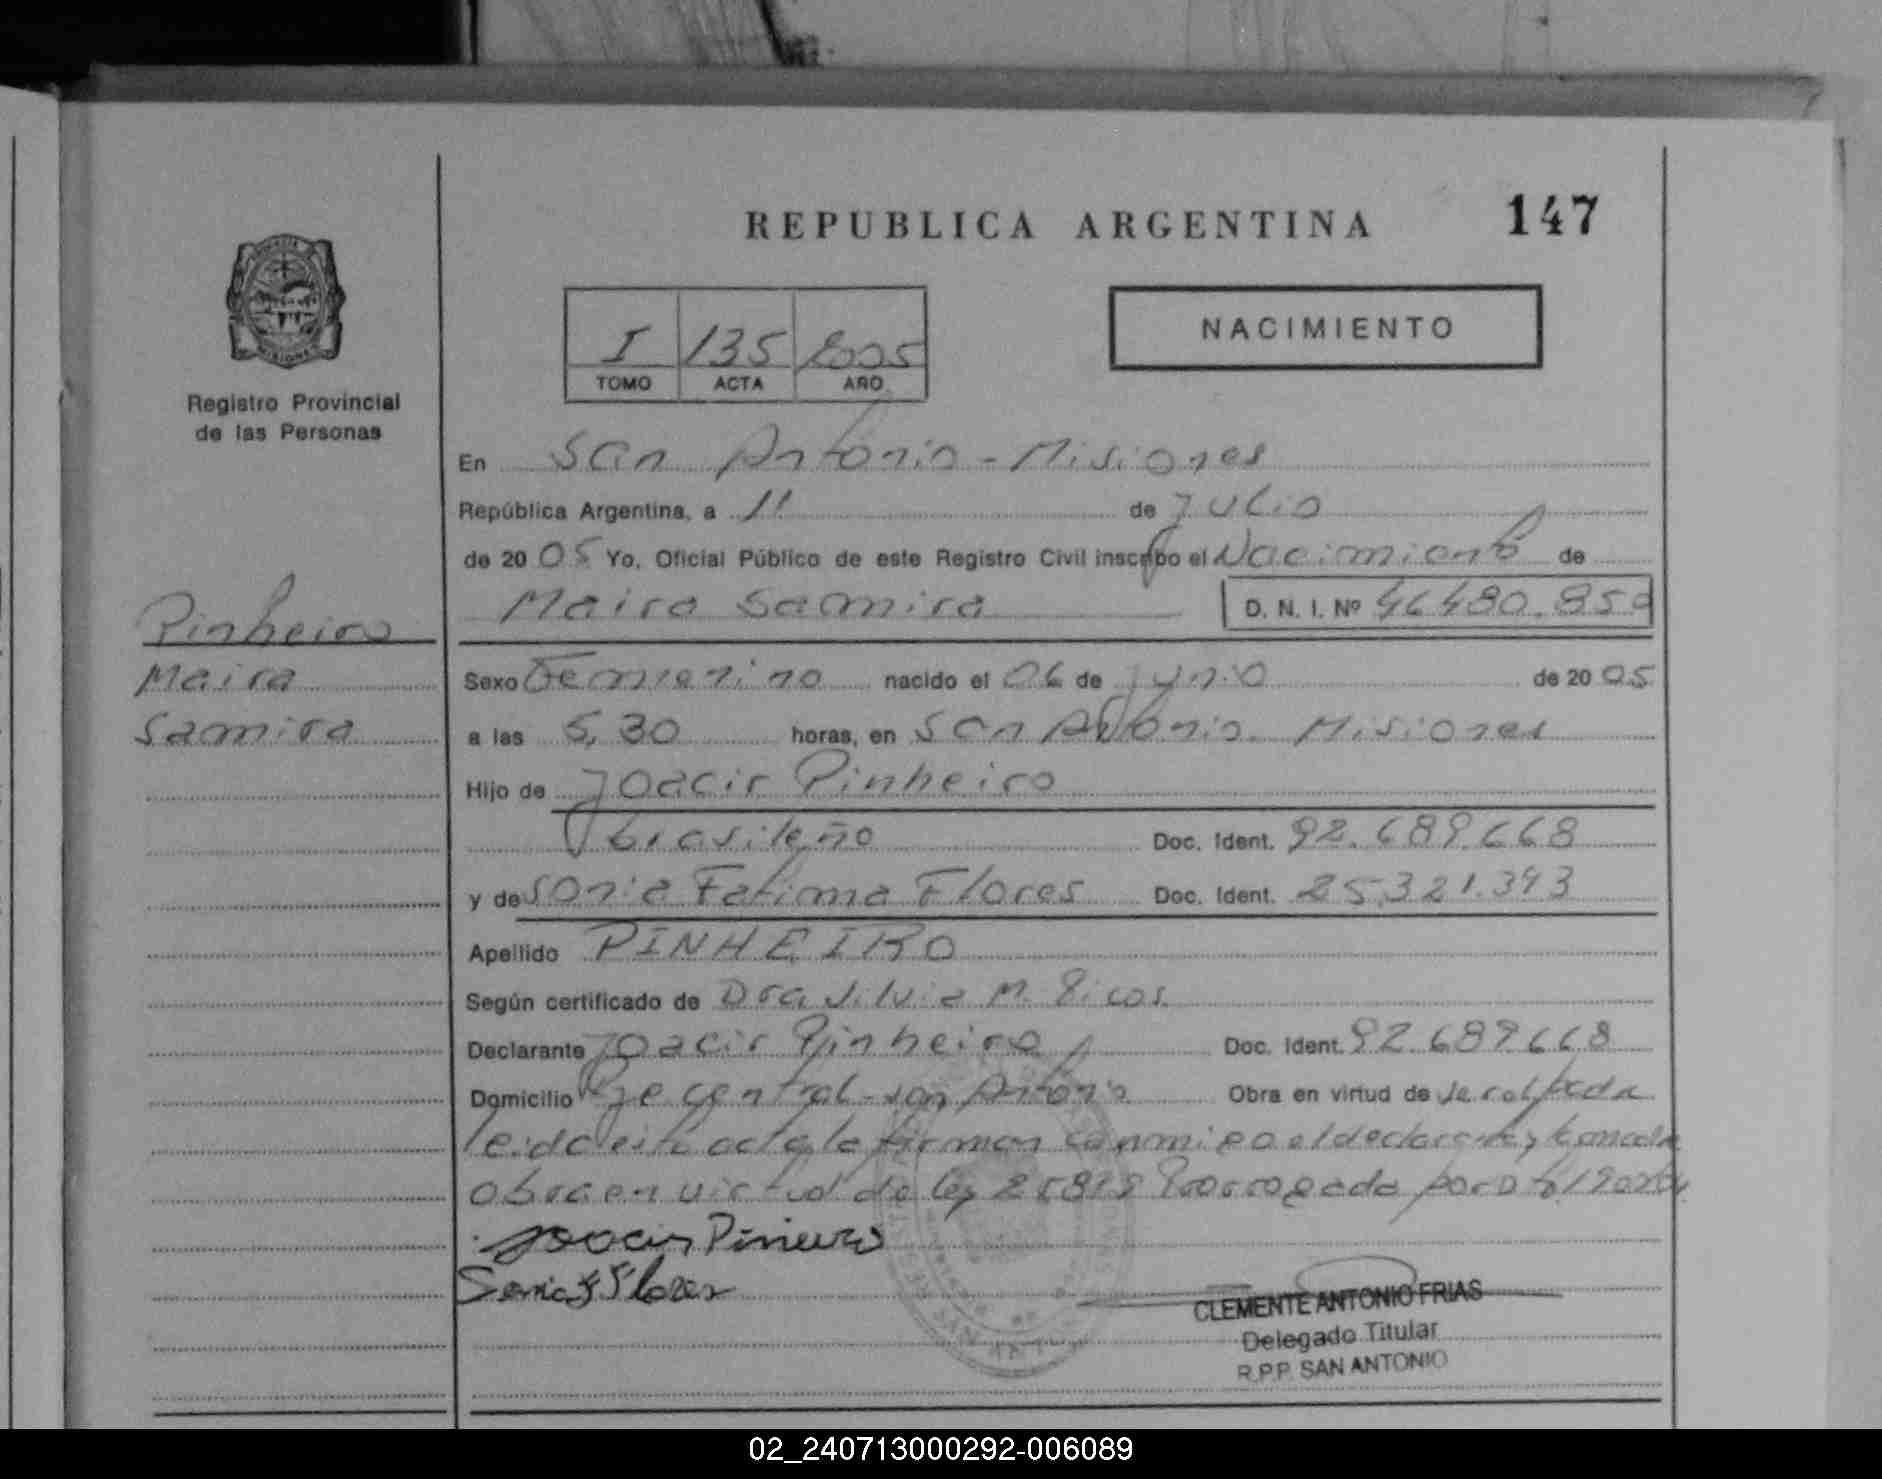 REPUBLICA ARGENTINA 147
NACIMIENTO
I 135 2005
TOMO ACTA AÑO
Registro Provincial
de las Personas
En San Antonio - Misiones
República Argentina, a 11 de Julio
de 2005 Yo, Oficial Público de este Registro Civil inscribo el Nacimiento de
Maira Samira D. N. I. Nº 46480.850
Pinheiro
Maira
Samira
Sexo Femenino nacido el 06 de Junio de 2005
a las 5,30 horas, en San Antonio. Misiones
Hijo de Joacir Pinheiro
brasileño Doc. Ident. 92.689.668
y de Sonia Fatima Flores Doc. Ident. 25.321.393
Apellido PINHEIRO
Según certificado de Dra Silvia M. Picos
Declarante Joacir Pinheiro Doc. Ident. 92.689.668
Domicilio Pje central - San Antonio Obra en virtud de
leida esta acta la firman conmigo el declarante y
Obra en virtud de ley Prorrogada por
Joacir Pineiro
Sonia F Flores
CLEMENTE ANTONIO FRIAS
Delegado Titular
R.P.P. SAN ANTONIO
02_240713000292-006089